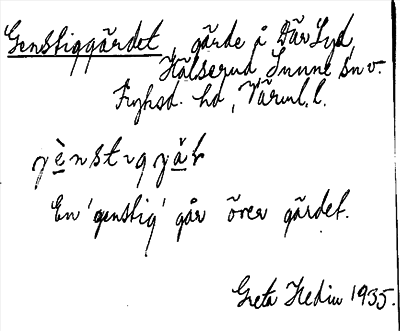 Genstiggärdet, gärde å Där Syd
Hälserud, Sunne sn v.
Fryksd. hd, Värml. l.
En 'genstig' går över gärdet.
Greta Hedin 1935.